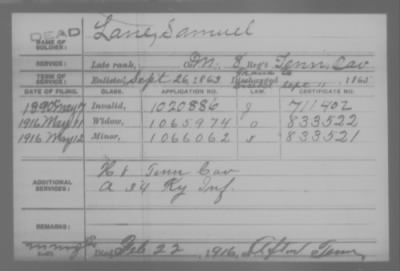 DEAD
NAME OF SOLDIER: Lane, Samuel
SERVICE: Late rank, Co. M. 8 Reg't Tenn. Cav
TERM OF SERVICE: Enlisted Sept 26, 1863 Discharged Sept 11, 1865
DATE OF FILING. CLASS. APPLICATION NO. LAW. CERTIFICATE NO.
Invalid, 1020886 711402
1916 May 11 Widow, 1065974 O 833522
1916 May 12 Minor, 1066062 S 833521
ADDITIONAL SERVICES: H 1 Tenn Cav
A 34 Ky Inf.
REMARKS:
Died Feb 22, 1916, at Afton Tenn,